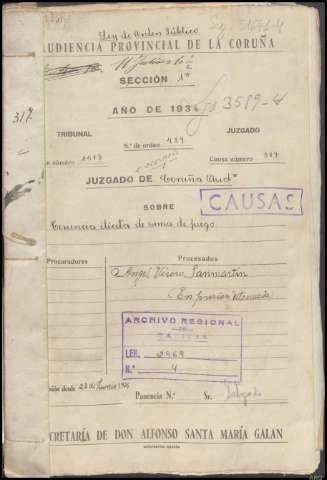 Ley de Orden Público
AUDIENCIA PROVINCIAL DE LA CORUÑA
SECCIÓN 1ª
AÑO DE 193
3519-4
317
TRIBUNAL
JUZGADO
N.º de orden 489
número
Causa número 317
JUZGADO DE Coruña Aud
CAUSAS
SOBRE
Tenencia ilícita de arma de fuego
Procuradores
Procesados
Angel Sanmartín
En prisión atenuada
ARCHIVO REGIONAL
DE
GALICIA
LEG. 2969
N.º 4
sión desde 23 de
Ponencia N.º
Sr. Delgado
SECRETARÍA DE DON ALFONSO SANTA MARÍA GALAN